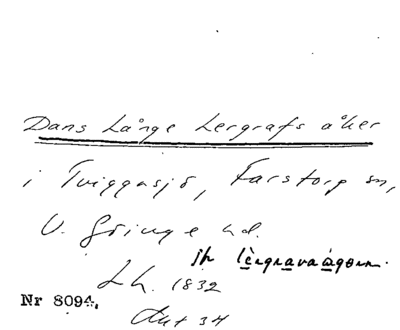 Dans Långe Lergrafs åker
i Tviggasjö, Farstorp sn,
V. Göinge hd.
jfr lèrgravaågorn.
Lh. 1832
Akt 34
Nr 8094.